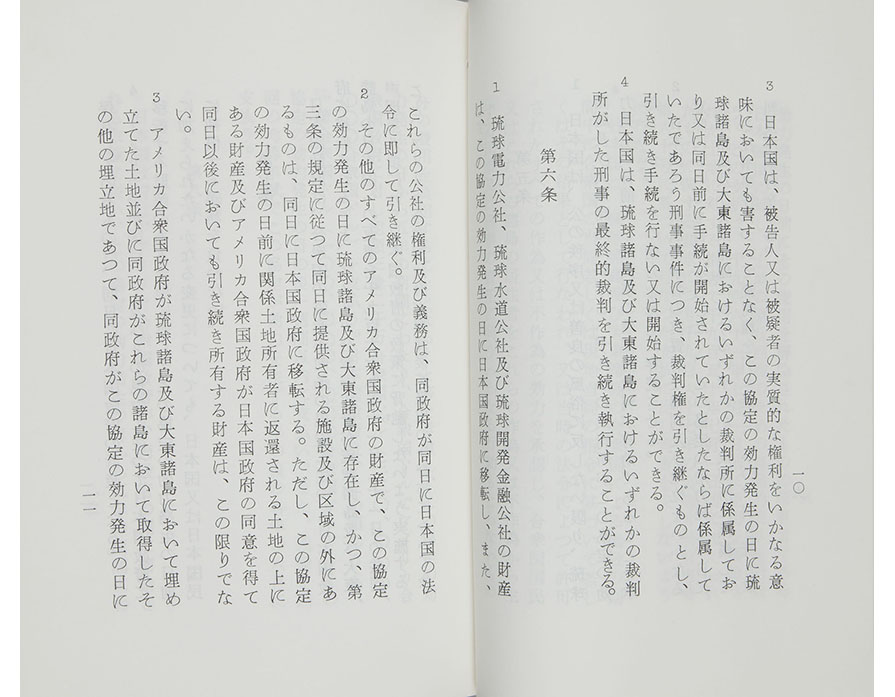 一〇
3 日本国は、被告人又は被疑者の実質的な権利をいかなる意
味においても害することなく、この協定の効力発生の日に琉
球諸島及び大東諸島におけるいずれかの裁判所に係属してお
り又は同日前に手続が開始されていたとしたならば係属して
いたであろう刑事事件につき、裁判権を引き継ぐものとし、
引き続き手続を行ない又は開始することができる。
4 日本国は、琉球諸島及び大東諸島におけるいずれかの裁判
所がした刑事の最終的裁判を引き続き執行することができる。
第六条
1 琉球電力公社、琉球水道公社及び琉球開発金融公社の財産
は、この協定の効力発生の日に日本国政府に移転し、また、
これらの公社の権利及び義務は、同政府が同日に日本国の法
令に即して引き継ぐ。
2 その他のすべてのアメリカ合衆国政府の財産で、この協定
の効力発生の日に琉球諸島及び大東諸島に存在し、かつ、第
三条の規定に従つて同日に提供される施設及び区域の外にあ
るものは、同日に日本国政府に移転する。ただし、この協定
の効力発生の日前に関係土地所有者に返還される土地の上に
ある財産及びアメリカ合衆国政府が日本国政府の同意を得て
同日以後においても引き続き所有する財産は、この限りでな
い。
3 アメリカ合衆国政府が琉球諸島及び大東諸島において埋め
立てた土地並びに同政府がこれらの諸島において取得したそ
の他の埋立地であつて、同政府がこの協定の効力発生の日に
一一